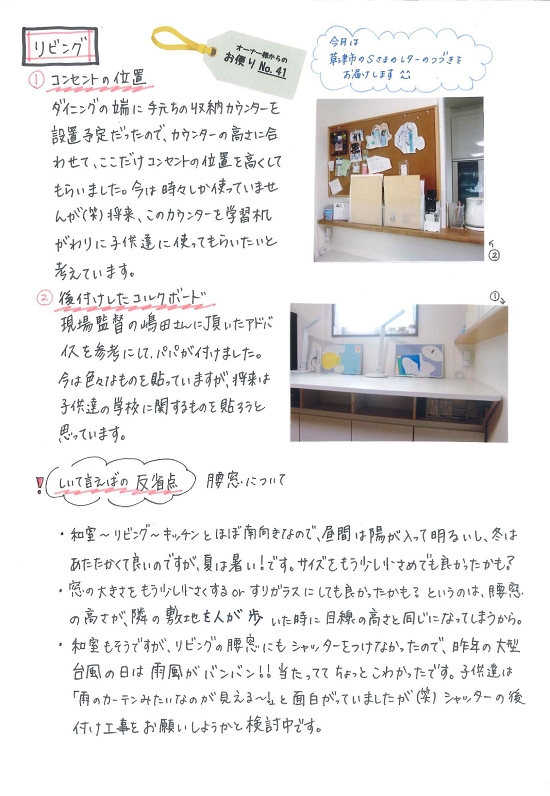 リビング
オーナー様からの
お便り No.41
今月は
草津市のSさまのレターのつづきを
お届けします
① コンセントの位置
ダイニングの端に手元ちの収納カウンターを
設置予定だったので、カウンターの高さに合
わせて、ここだけコンセントの位置を高くして
もらいました。今は時々しか使っていませ
んが(笑)将来、このカウンターを学習机
がわりに子供達に使ってもらいたいと
考えています。
②
② 後付けしたコルクボード
①
現場監督の嶋田さんに頂いたアドバ
イスを参考にして、パパが付けました。
今は色々なものを貼っていますが、将来は
子供達の学校に関するものを貼ろうと
思っています。
! しいて言えばの 反省点 腰窓について
・和室〜リビング〜キッチンとほぼ南向きなので、昼間は陽が入って明るいし、冬は
あたたかくて良いのですが、夏は暑い!です。サイズをもう少し小さめでも良かったかも?
・窓の大きさをもう少し小さくする or すりガラスにしても良かったかも? というのは、腰窓
の高さが、隣の敷地を人が歩いた時に目線の高さと同じになってしまうから。
・和室もそうですが、リビングの腰窓にもシャッターをつけなかったので、昨年の大型
台風の日は雨風がバンバン!!当たっててちょっとこわかったです。子供達は
「雨のカーテンみたいなのが見える〜!」と面白がっていましたが(笑)シャッターの後
付け工事をお願いしようかと検討中です。